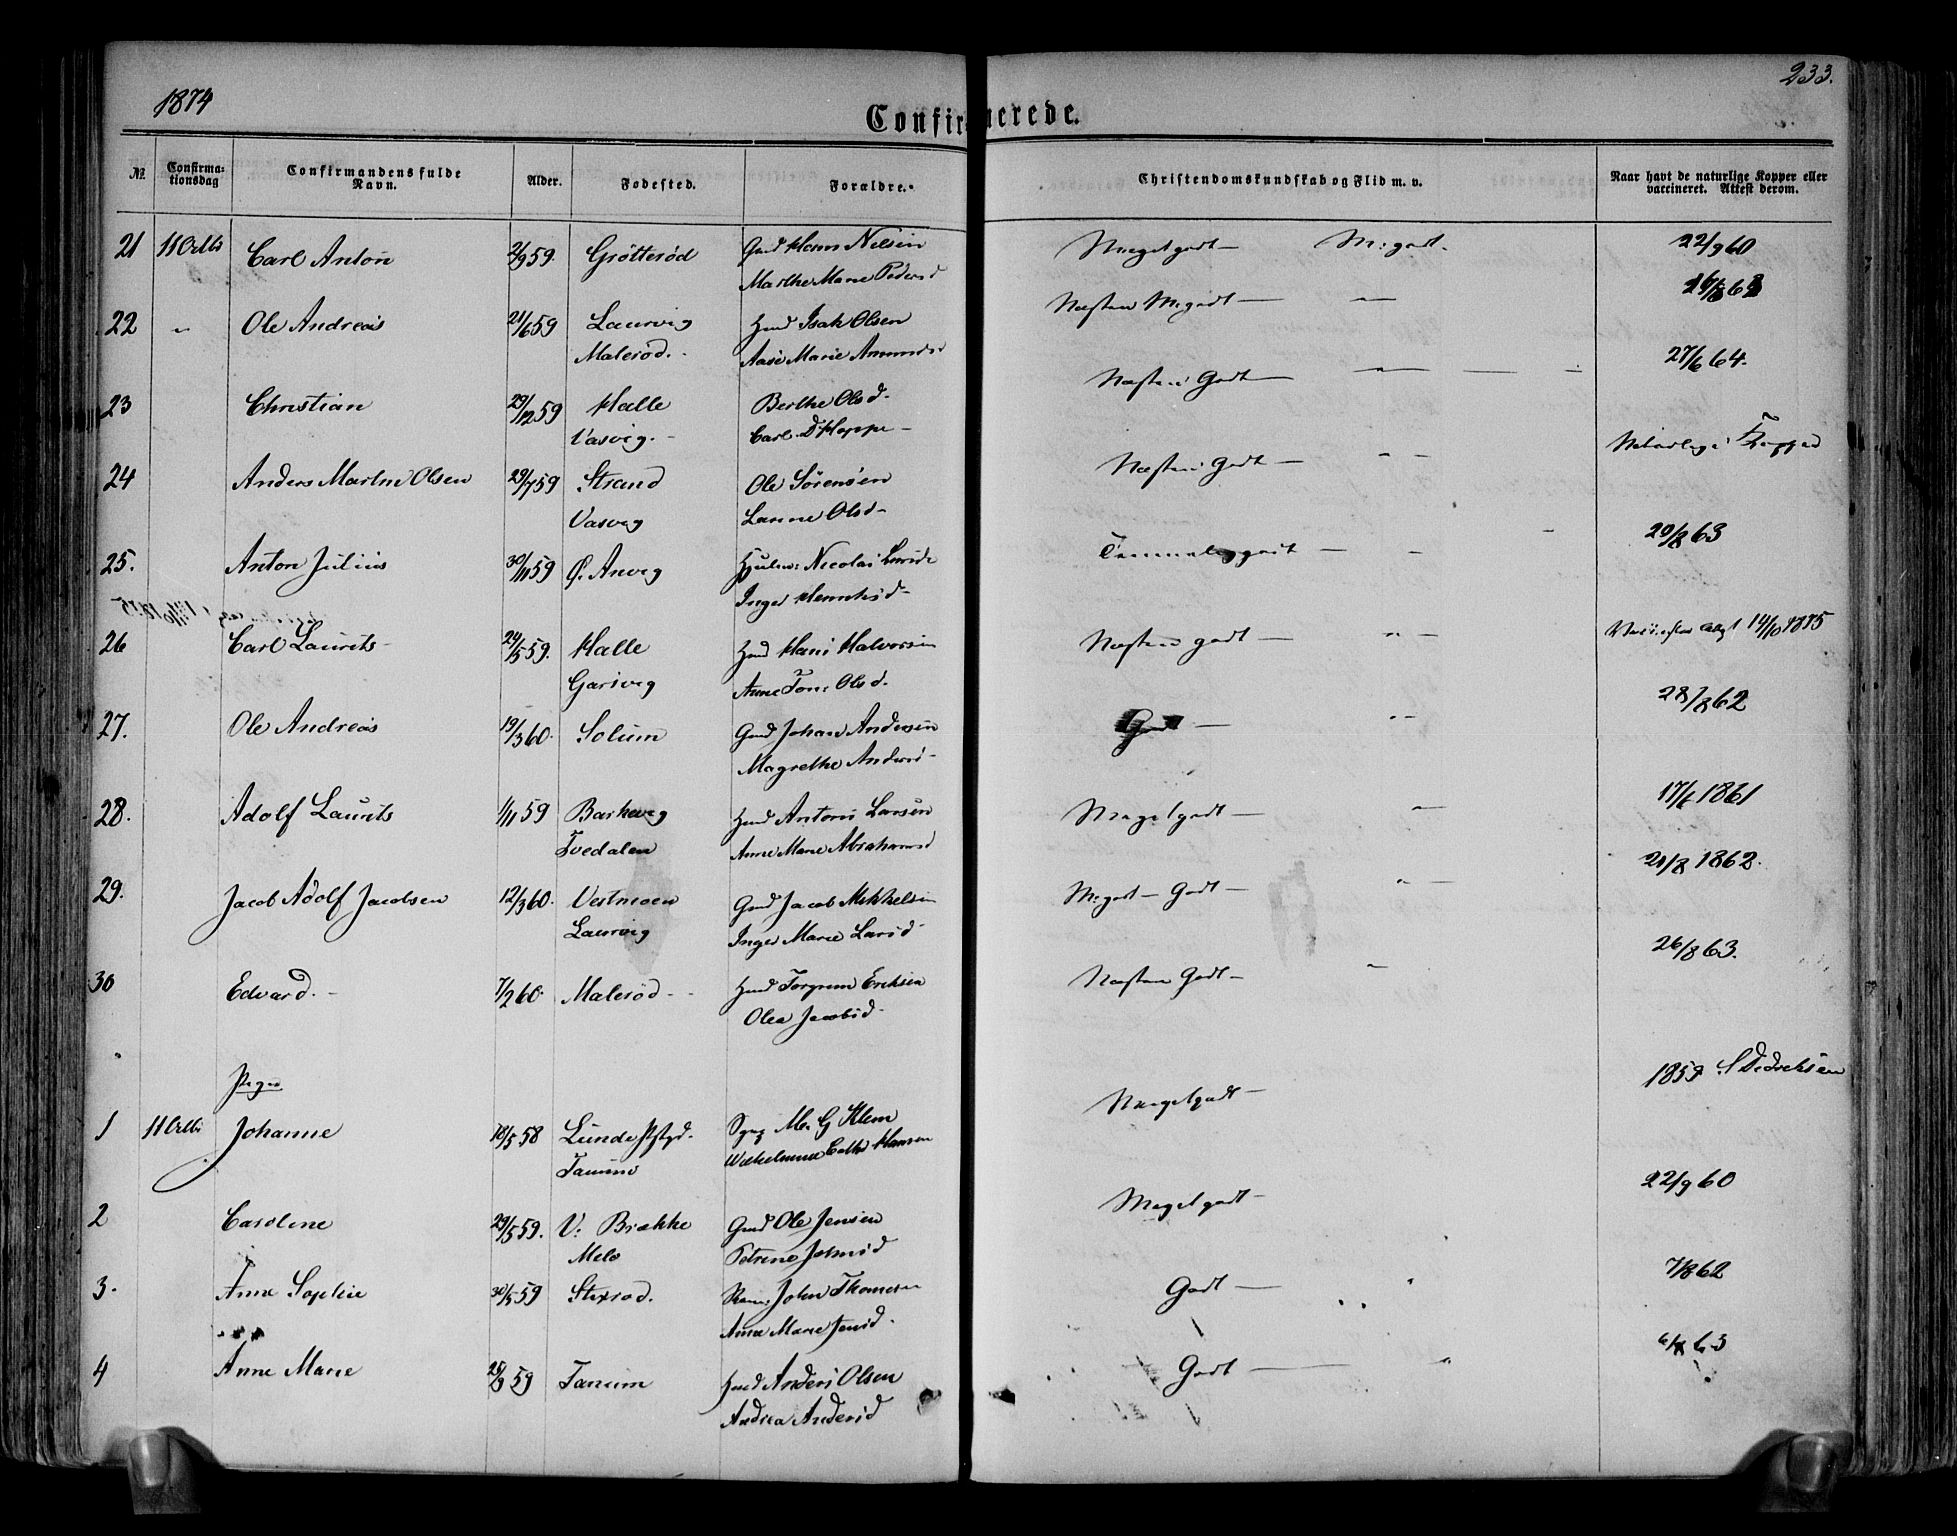 1874
233.
Confirmerede.
No. Confirmationsdag Confirmandens fulde Navn. Alder. Fødested. Forældre. Christendomskundskab og Flid m. v. Naar havt de naturlige Kopper eller vaccineret. Attest derom.
21 11 Octbr Carl Anton 2/9 59. Grøtterød Gmd Hans Nilsen Meget godt — M. godt. 22/9 60
Marthe Marie Pedersd
22 " Ole Andreas 21/6 59 Laurvig Hmd Isak Olsen Næsten M. godt — " —
Malerød. Aase Marie
23 Christian 29/12 59 Halle Berthe Olsd. Næsten Godt — " — 27/6 64.
Vasvig. Carl D Hoppe
24 Anders Martin Olsen 29/7 59 Strand Ole Sørensen Næsten Godt — " — Naturlige Kopper
Vasvig Olsd
25. Anton Julius 30/11 59 Ø. Anvig Nicolai Næsten — 20/8 63
Inger
26 Carl Laurits 24/5 59. Halle Hmd Hans Halvorsen Næsten godt — " — 14/10 1875
Anne Olsd.
27. Ole Andreas 19/3 60. Solum Gmd Johan Andersen Godt — " — 28/8 62
Magrethe Andersd
28. Adolf Laurits 1/11 59 Barkevig Hmd Anton Larsen Meget godt — " — 17/6 1861
Tvedalen Anne Marie Abrahamsd
29. Jacob Adolf Jacobsen 12/3 60. Vestmoen Gmd Jacob Mikkelsen M. godt — Godt — " — 21/8 1862.
Laurvig Inger Marie Larsd
30 Edvard. 7/2 60. Malerød Hmd Torgrim Eriksen Næsten Godt — " 26/8 63.
Olea Jacobsd
Piger
1 11 Octbr Johanne 18/5 58 Lunde Pstgd. M. G Klem Meget godt — 1859 S Didriksen
Tanum Wilhelmine Cathr Hansen
2 Caroline 29/5 59. V. Brække Gmd Ole Jensen Meget godt — 22/9 60
Melø Petrine Johnsd
3. Anne Sophie 30/5 59 John Thomesen Godt — " 7/8 62
Anne Marie Jensd
4 Anne Marie 25/9 59 Tanum Hmd Anders Olsen Godt — " 6/8 63
Andrea Andersd